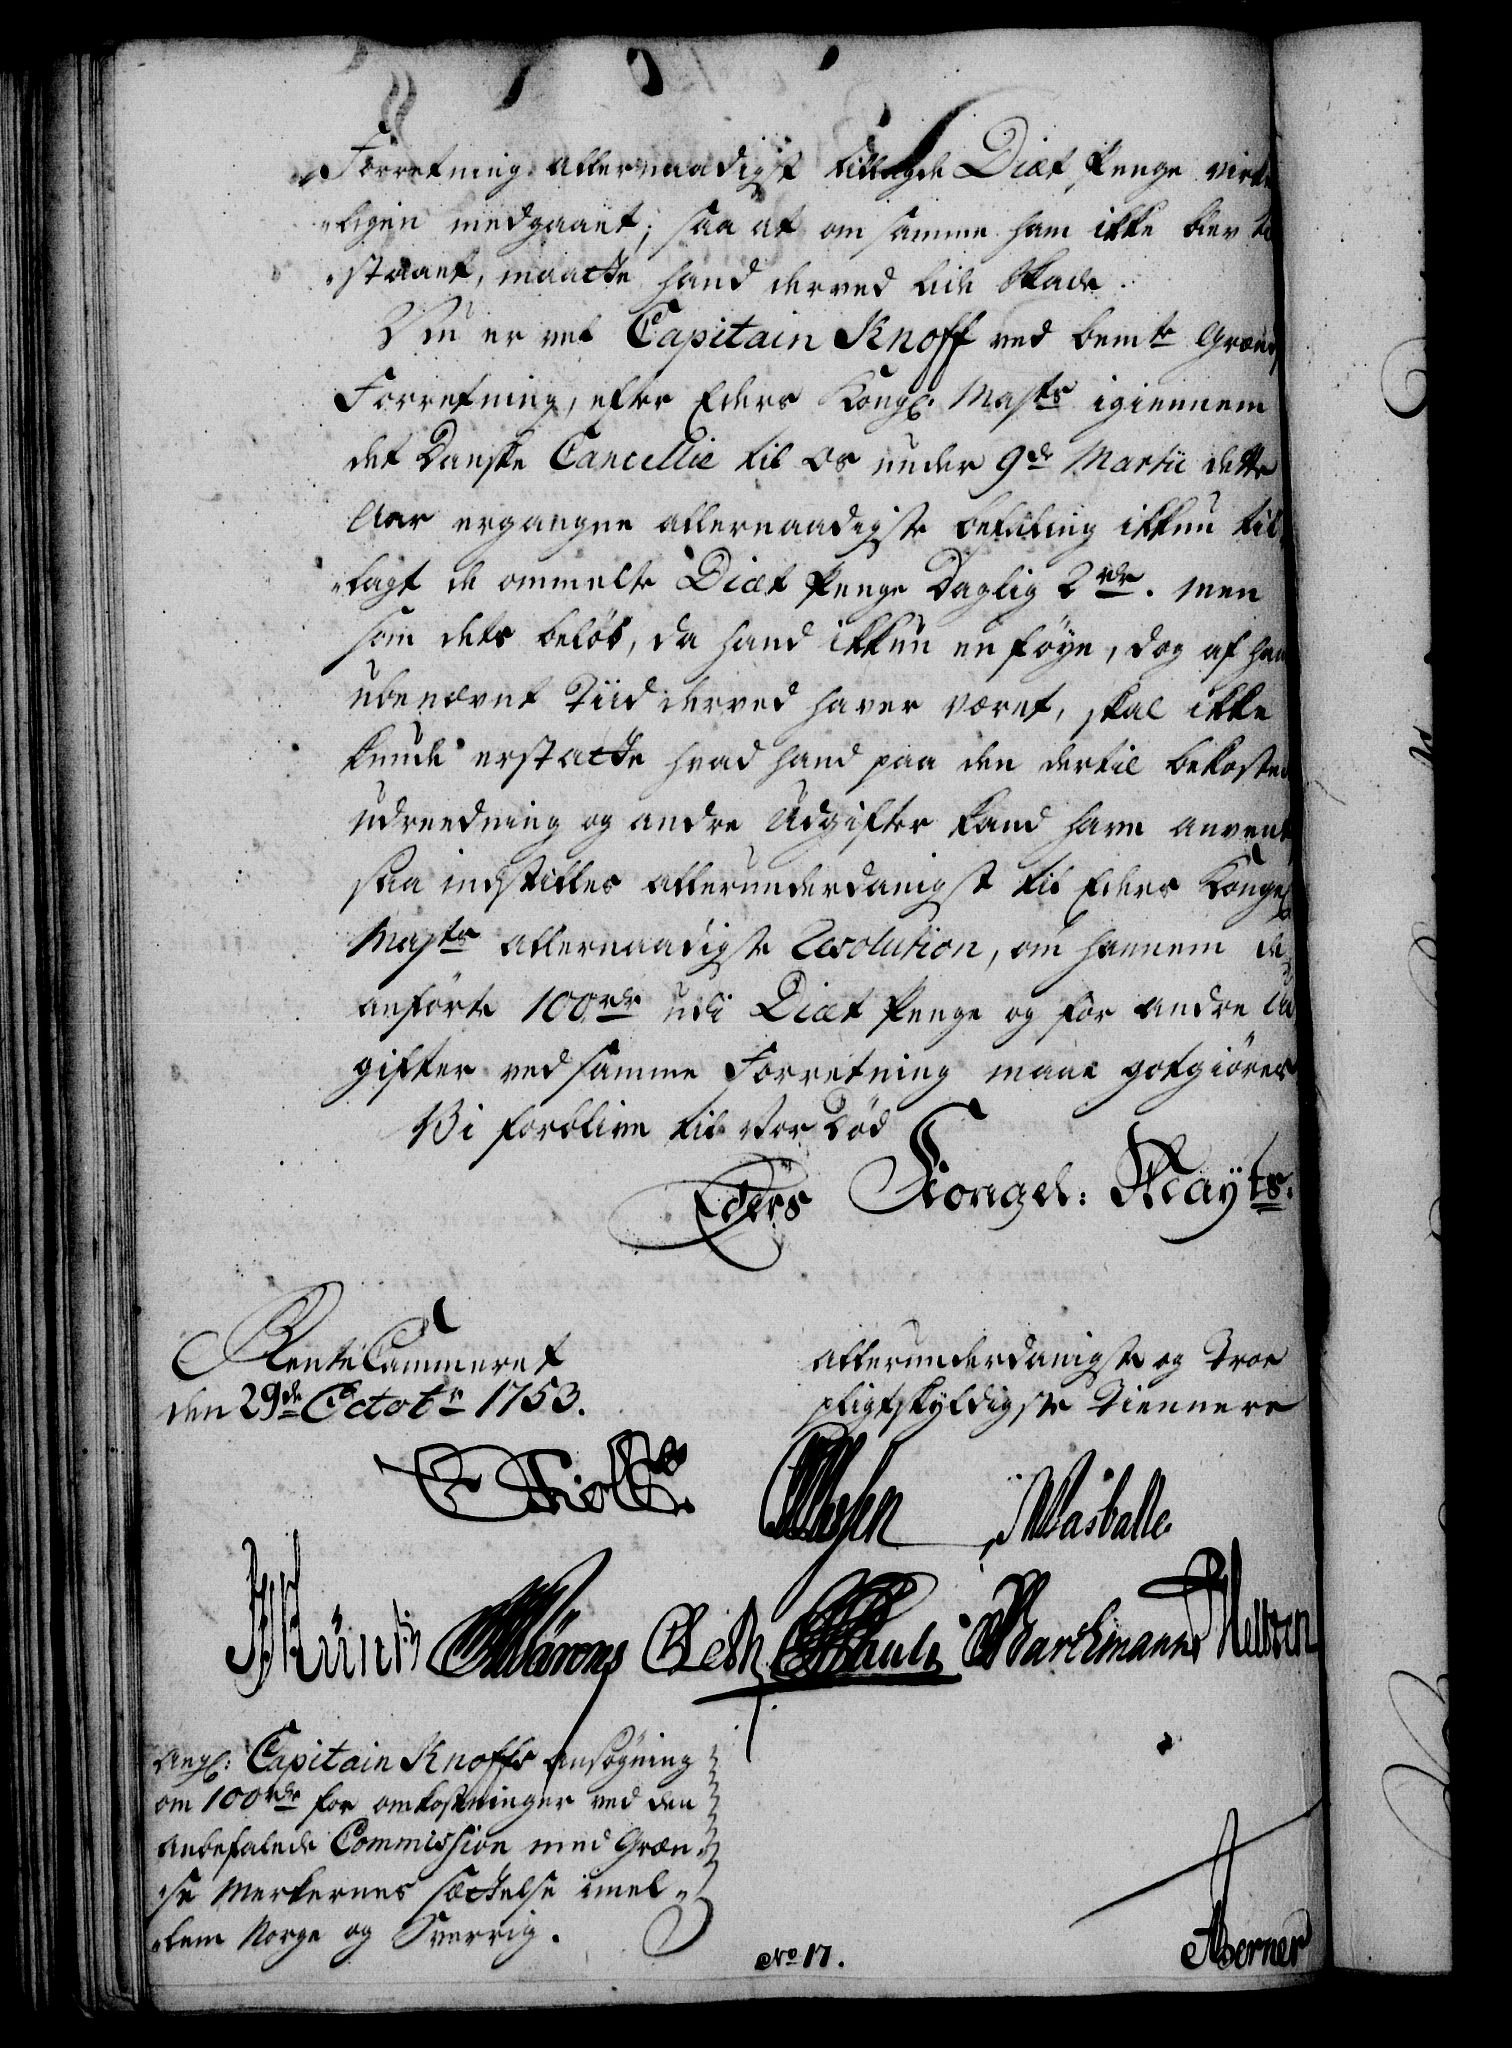 Forretning allernaadigst tillagde Diæt Penge virke
„ligen medgaaet; saa at om samme ham ikke blev til
„staaet, maatte hand derved lide Skade.
Nu er vel Capitain Knoff ved bemte Grændse
Forretning, efter Eders Kongl. Mayts igiennem
det Danske Cancellie til os under 9de Martii dette
Aar ergangne allernaadigste befaling ikkun til
„lagt de ommelte Diæt Penge Daglig 2 rdr. men
som dets beløb, da hand ikkun en føye, dog af ham
ubenævnt Tiid derved haver været, skal ikke
kunde erstatte hvad hand paa den dertil bekostede
udreedning og andre Udgifter kand have anvent,
saa indstilles allerunderdanigst til Eders Kongel.
Mayts allernaadigste Resolution, om hannem de
anførte 100 rdr udi Diæt Penge og for andre Ud
gifter ved samme Forretning maae gotgiøres
Vi forblive til Vor Død
Eders Kongel: Mayts.
RenteCammeret
den 29de Octobr 1753.
allerunderdanigste og Troe
pligtskyldigste Tiennere
Holck
Wasballe
Pauli Barchmann
Ang: Capitain Knoffs ansøgning
om 100 rdr for omkostninger ved den
anbefalede Commission med Græn„
„se Merkernes sættelse imel„
„lem Norge og Sverrig.
No 17.
Berner